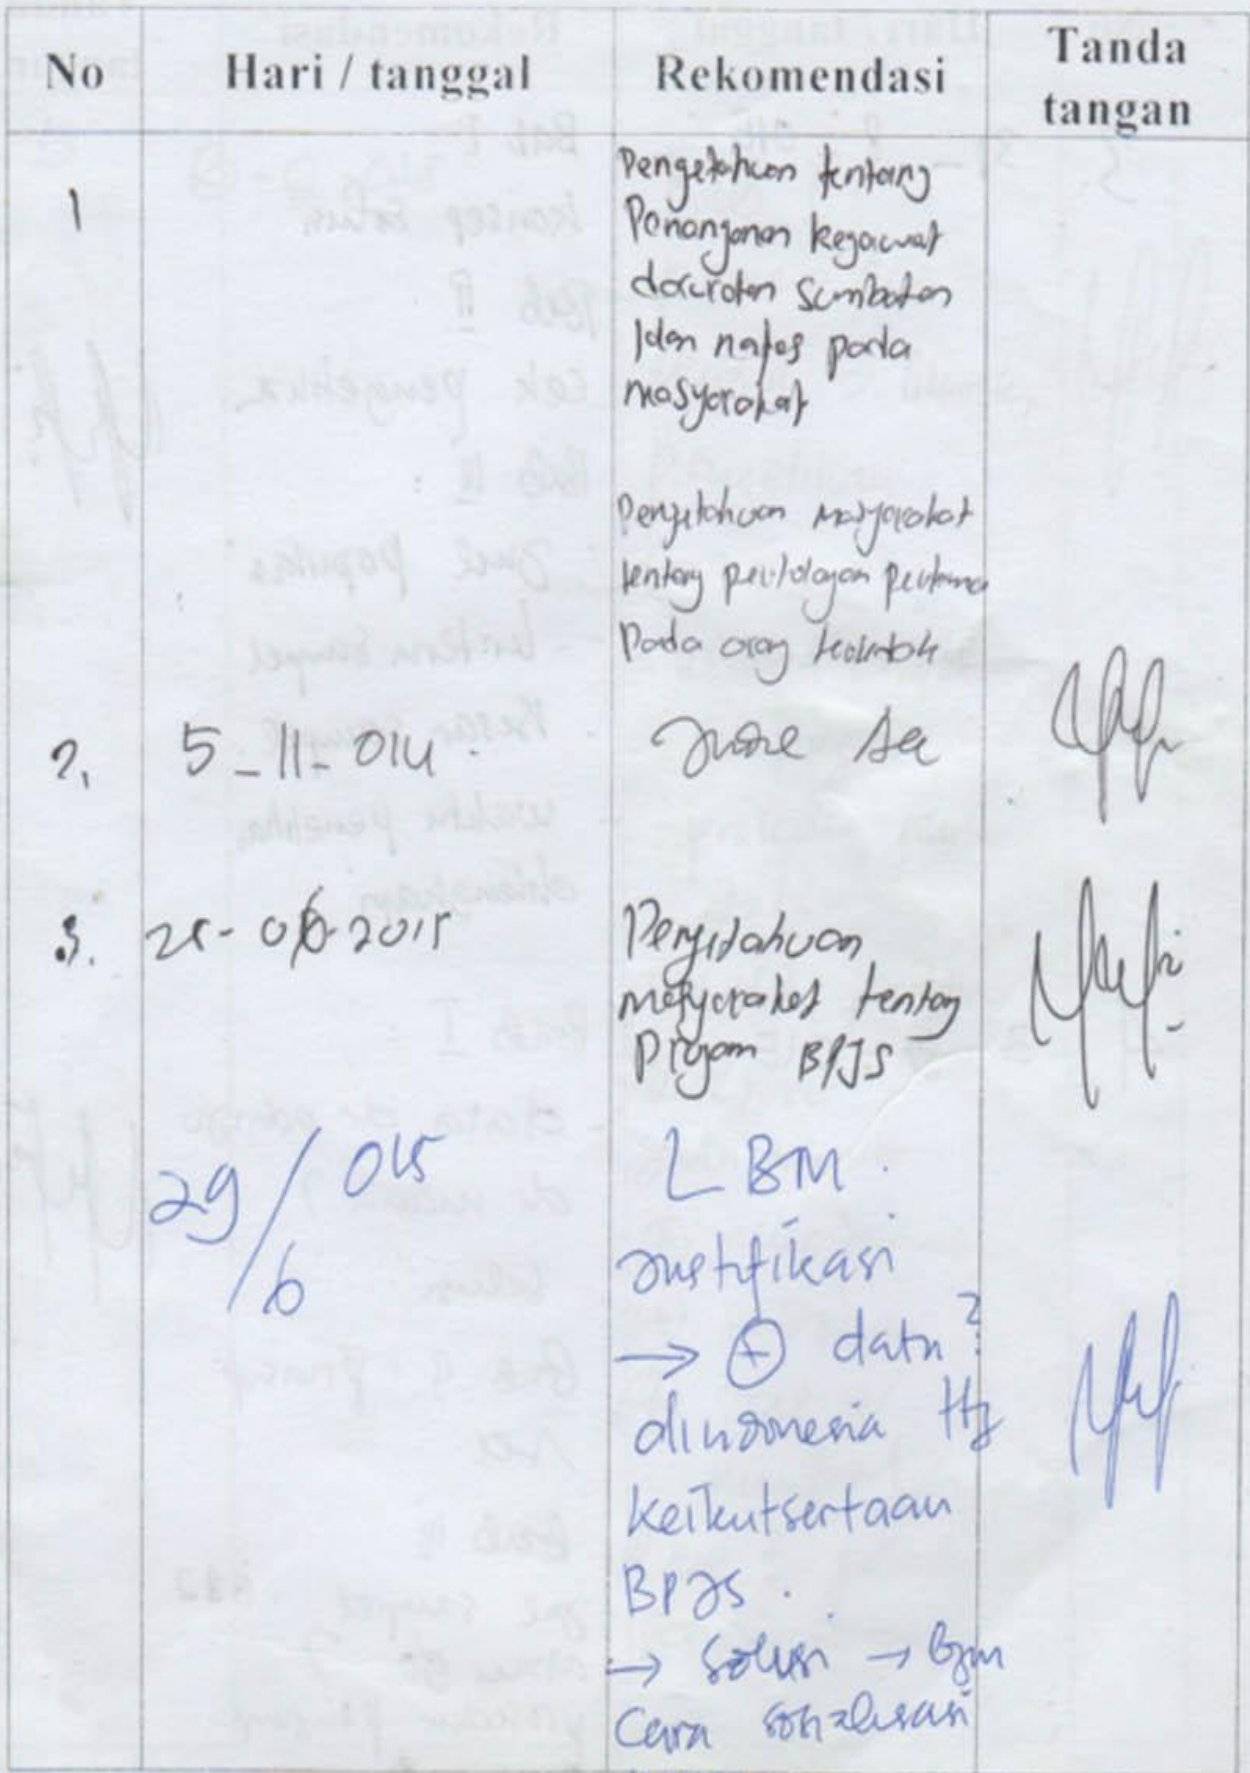 No Hari / tanggal Rekomendasi Tanda tangan
1
Pengetahuan tentang
Penanganan kegawat
daruratan sumbatan
jalan nafas pada
masyarakat
Pengetahuan masyarakat
tentang pertolongan pertama
pada orang
2. 5-11-014. Acc
3. 25-06-2015 Pengetahuan
masyarakat tentang
Program BPJS
29/6 015 LBM.
Justifikasi
→ + data?
diindonesia ttg
keikutsertaan
BPJS.
→ solusi → bgm
cara sosialisasi